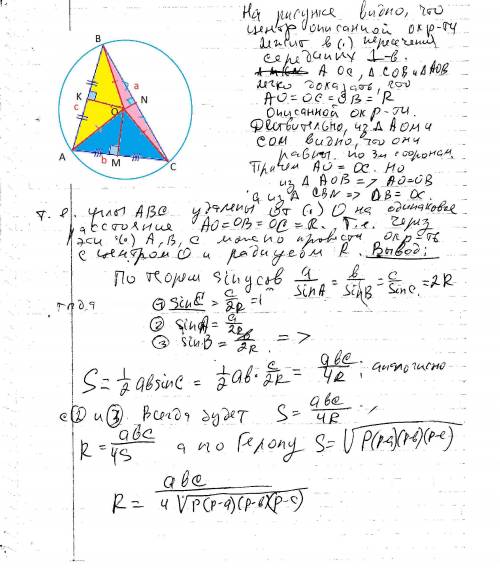 На рисунке видно, что
центр описанной окр-ти
лежит в (.) пересечения
серединных ⊥-в.
AOC, ΔCOB и ΔAOB
легко доказать, что
AO=OC=OB=R
Описанной окр-ти.
Действительно, из ΔAOM и
COM видно, что они
равны по 3м сторонам.
Причем AO = OC. Но
из ΔAOB => AO=OB
а из ΔCBN => OB=OC
B
K
c
a
N
O
A
b
M
C
т.е. углы ABC удалены от (.) O на одинаковое
расстояние AO=OB=OC=R. Т.е. через
эти (.) A, B, C можно провести окр-ть
с центром O и радиусом R. Вывод:
По теорем sinусов a/sinA = b/sinB = c/sinC = 2R
① sinC = c/2R
② sinA = a/2R
③ sinB = b/2R =>
S = 1/2 ab sinC = 1/2 ab · c/2R = abc/4R; аналогично
с ② и ③ Всегда будет S = abc/4R;
R = abc/4S а по Герону S = √P(p-a)(p-b)(p-c)
R = abc / 4√P(p-a)(p-b)(p-c)